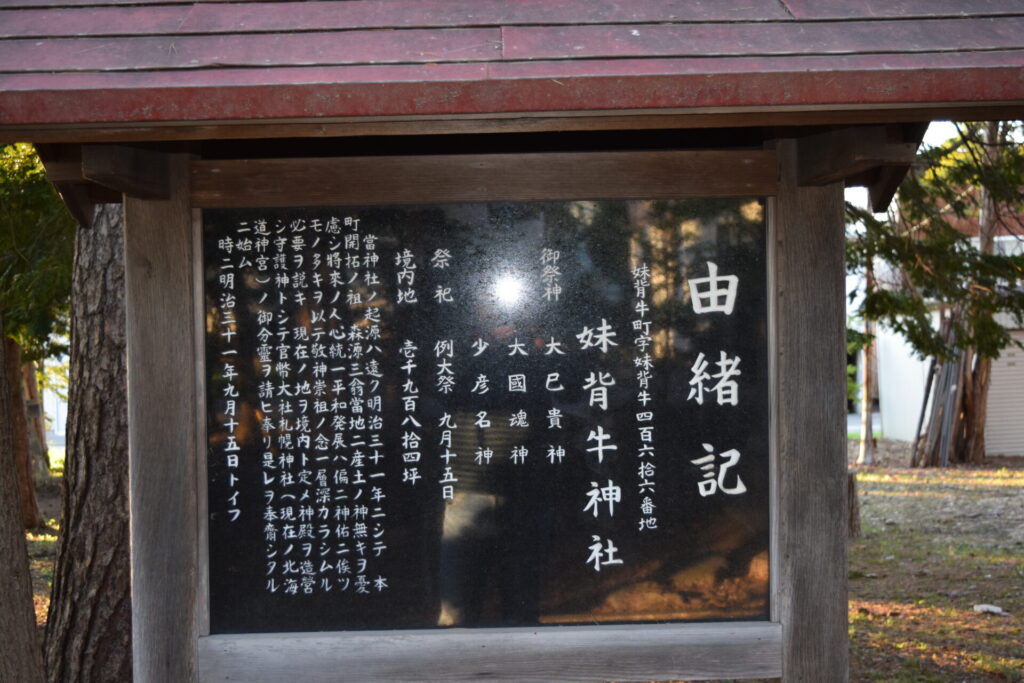 由緒記
妹背牛町字妹背牛四百六拾六番地
妹背牛神社
御祭神 大巳貴神
大國魂神
少彦名神
祭祀 例大祭 九月十五日
境内地 壱千九百八拾四坪
當神社ノ起源ハ遠ク明治三十一年ニシテ 本
町開拓ノ祖 森源三翁當地ニ産土ノ神無キヲ憂
慮シ將來ノ人心統一平和発展ハ偏ニ神佑ニ俟ツ
モノ多キヲ以テ敬神崇祖ノ念一層深カラシムル
必要ヲ説キ 現在ノ地ヲ境内ト定メ神殿ヲ造営
シ守護神トシテ官幣大社札幌神社（現在ノ北海
道神宮）ノ御分霊ヲ請ヒ奉リ是レヲ奉齋シタル
ニ始ム
時ニ明治三十一年九月十五日トイフ